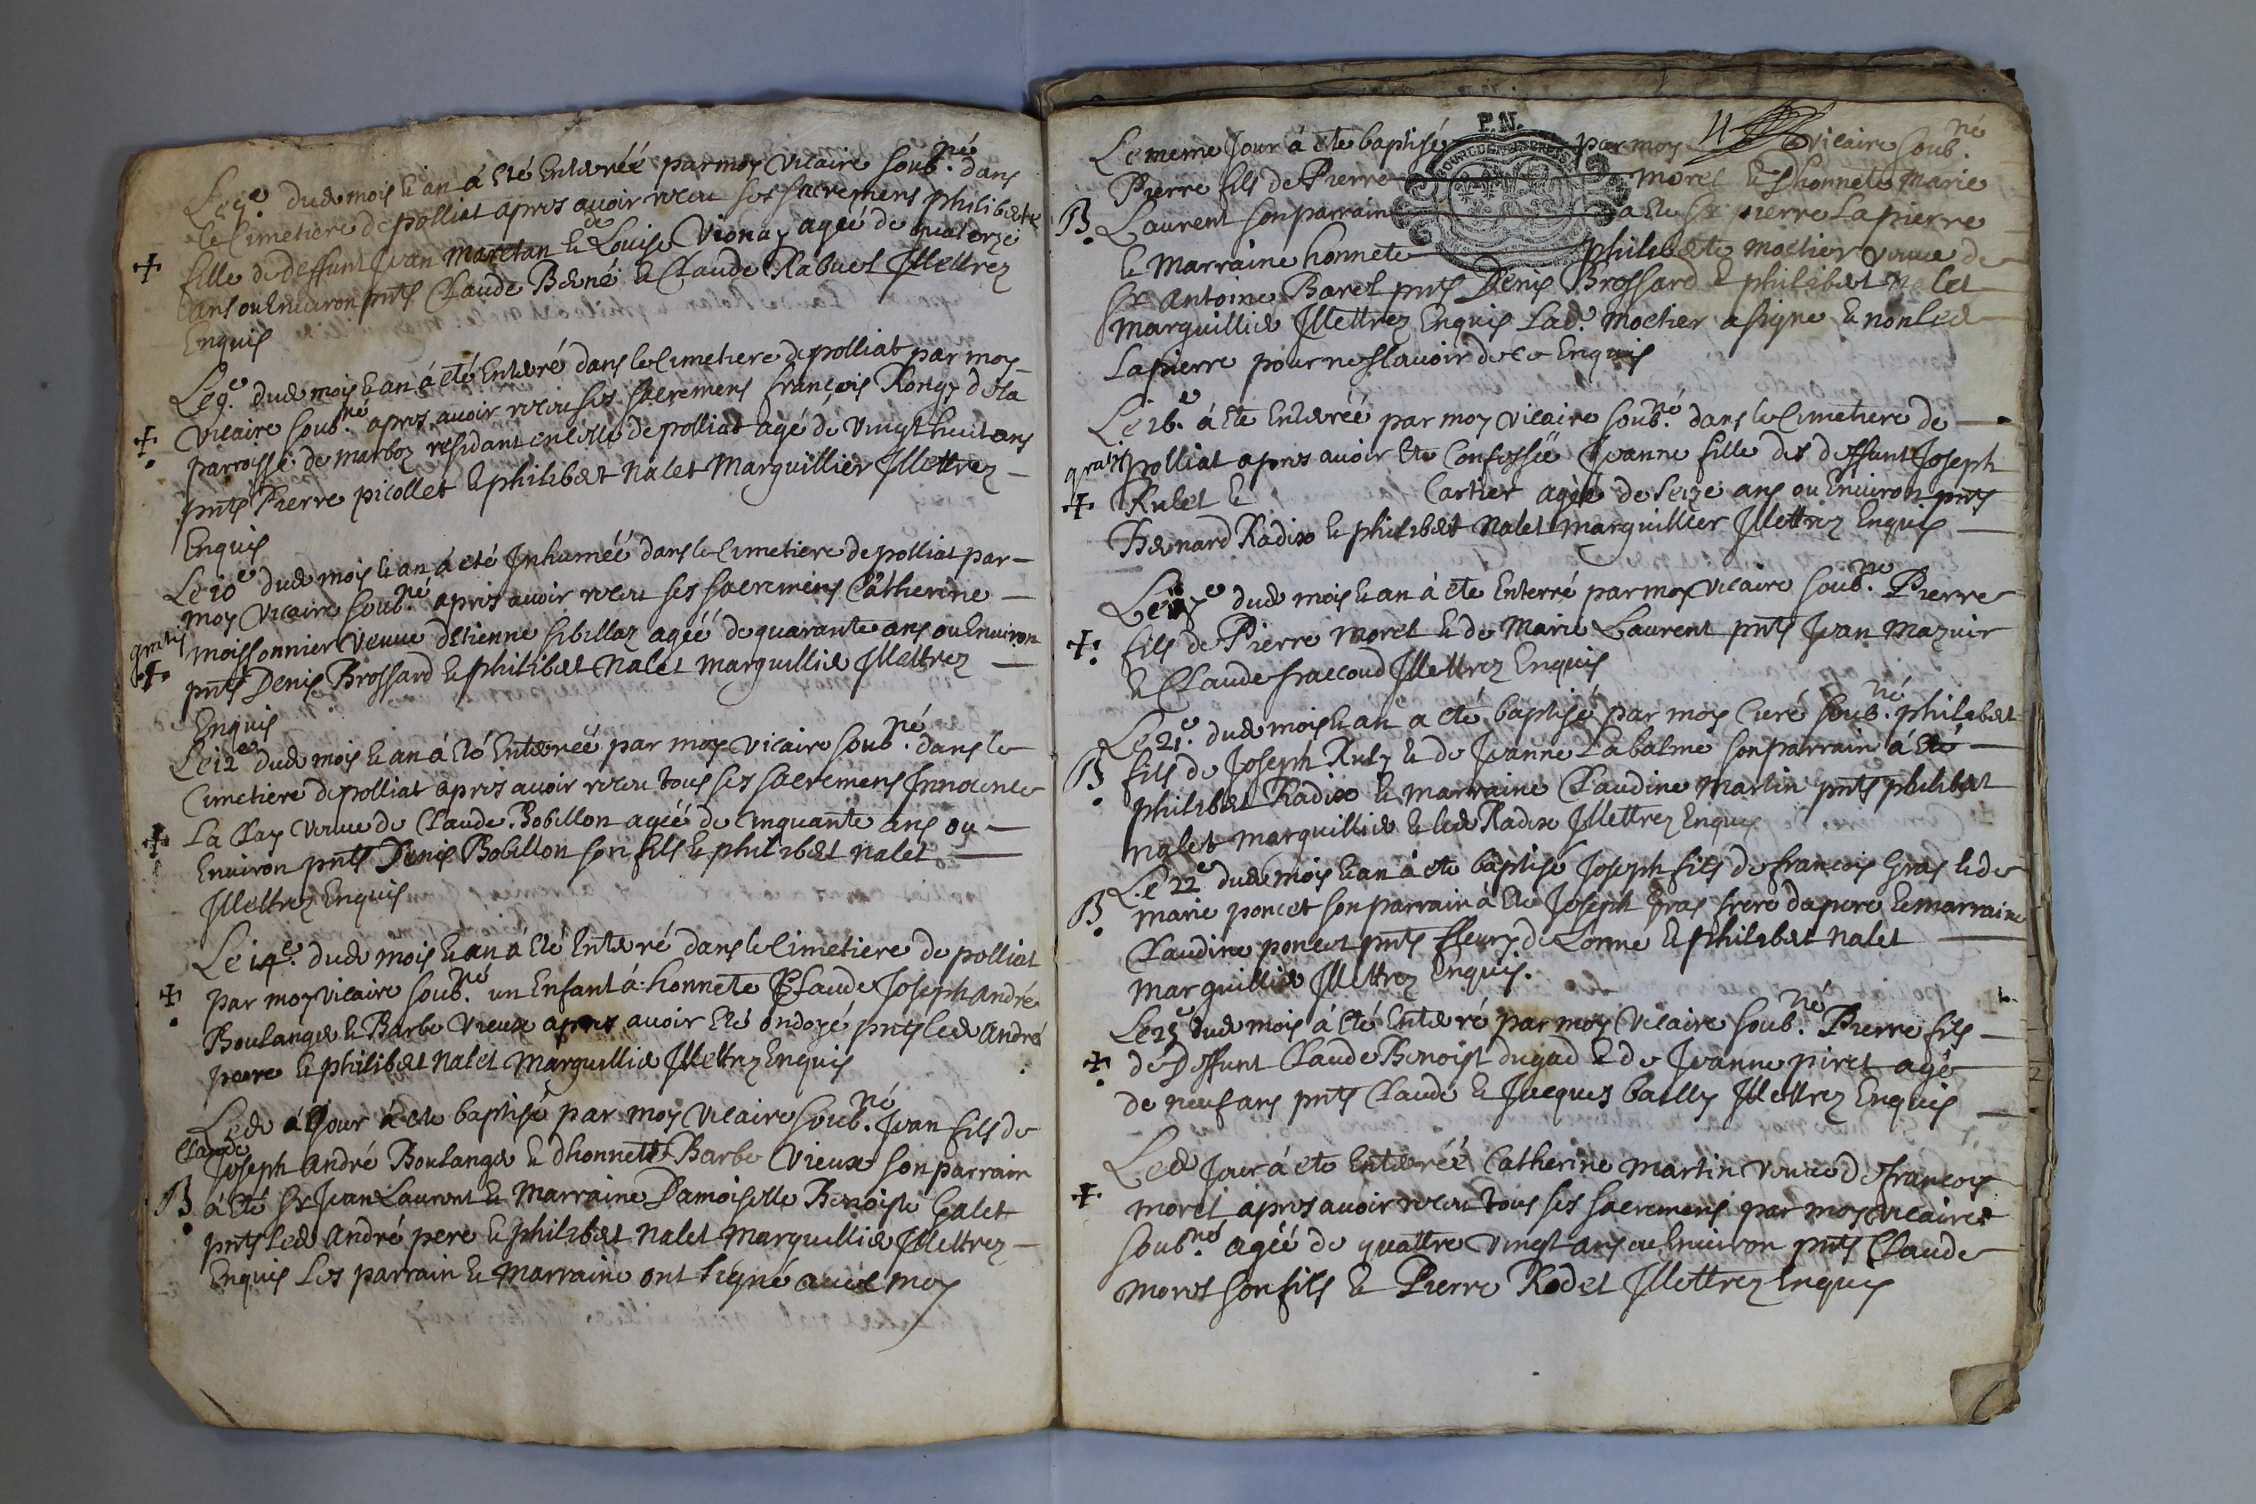 Le 7e dud mois & an á eté Enterréé par moy vicaire soub.né dans
le Cimetiere de polliat apres auoir receu ses sacremens philiberte
✝ fille de deffunt Jean Maretan & de Louise Vionay agéé de quatorze
ans ou Enuiron pnts Claude Bené & Claude Rabuel Jllettrez
Enquis
Le 9e dud mois & an á eté Enterré dans le Cimetiere de polliat par moy
✝ vicaire soub.né apres auoir receu ses sacremens françois Rongy de la
parroisse de marboz residant en celle de polliat agé de vingt huit ans
pnts Pierre picollet & philibert nalet Marguillier Jllettrez
Enquis
Le 10e dud mois & an á eté Jnhuméé dans le Cimetiere de polliat par
moy vicaire soub.né apres auoir receu ses sacremens Catherine
gratis ✝ moissonnier veuue d'etienne sibillaz agéé de quarante ans ou Enuiron
pnts Denis Brossard & philibert nalet marguillier Jllettrez
Enquis
Le 12e dud mois & an á eté Enterréé par moy vicaire soub.né dans le
Cimetiere de polliat apres auoir receu tous ses sacremens Jnnocente
✝ La Clay veuue de Claude Bobillon agéé de cinquante ans ou
Enuiron pnts Denis Bobillon son fils & philibert nalet
Jllettrez Enquis
Le 14e dud mois & an á eté Enterré dans le Cimetiere de polliat
✝ par moy vicaire soub.né un Enfant á honnete Claude Joseph andré
Boulanger & Barbe Vieux apres auoir eté ondoyé pnts led andré
pere & philibert nalet Marguillier Jllettrez Enquis
Led Jour á ete baptisé par moy vicaire soub.né Jean fils de
Claude
Joseph andré Boulanger & d'honnete Barbe Vieux son parrain
B á eté Sr Jean Laurent & Marraine Damoiselle Benoiste Galet
pnts led andré pere & philibert nalet Marguillier Jllettrez
Enquis Les parrain & Marraine ont signé auec moy
P.N.
Le meme Jour á ete baptisé par moy vicaire soub.né
Pierre fils de Pierre morel & d'honnete Marie
B Laurent son parrain a ete Sr pierre Lapierre
& Marraine honnete philiberte moctier veuue de
Sr Antoine Barel pnts Denis Brossard & philibert nalet
Marguillier Jllettrez Enquis Lad. moctier a signe & non led
Lapierre pour ne sçauoir de ce Enquis
Le 16e á ete Enterréé par moy vicaire soub.né dans le Cimetiere de
gratis polliat apres auoir ete Confesséé Jeanne fille des deffunt Joseph
✝ Rulet & Cartier agéé de seize ans ou Enuiron pnts
Bernard Radix & philibert nalet marguillier Jllettrez Enquis
Le 17e dud mois & an á ete Enterré par moy vicaire soub.né Pierre
✝ fils de Pierre morel & de Marie Laurent pnts Jean Mazuir
& Claude fraccoud Jllettrez Enquis
Le 21e dud mois & an a eté baptisé par moy Curé soub.né philibert
B fils de Joseph Ruly & de Jeanne Labalme son parrain á eté
philibert Radix & Marraine Claudine Martin pnts philibert
nalet marguillier & led Radix Jllettrez Enquis
Le 22e dud mois & an á ete baptisé Joseph fils de françois Gras & de
B marie poncet son parrain á ete Joseph Gras frere du pere & marraine
Claudine poncet pnts fleury de Lorme & philibert nalet
marguillier Jllettrez Enquis.
Le 25e dud mois á eté Enterré par moy vicaire soub.né Pierre fils
✝ de deffunt Claude Benoist dugad & de Jeanne piret agé
de neuf ans pnts Claude & Jacques bailly Jllettrez Enquis
Led Jour á ete Enterréé Catherine Martin veuue de françois
✝ morel apres auoir receu tous ses sacremens par moy vicaire
soub.né agéé de quattre vingt ans ou Enuiron pnts Claude
morel son fils & Pierre Rodet Jllettrez Enquis